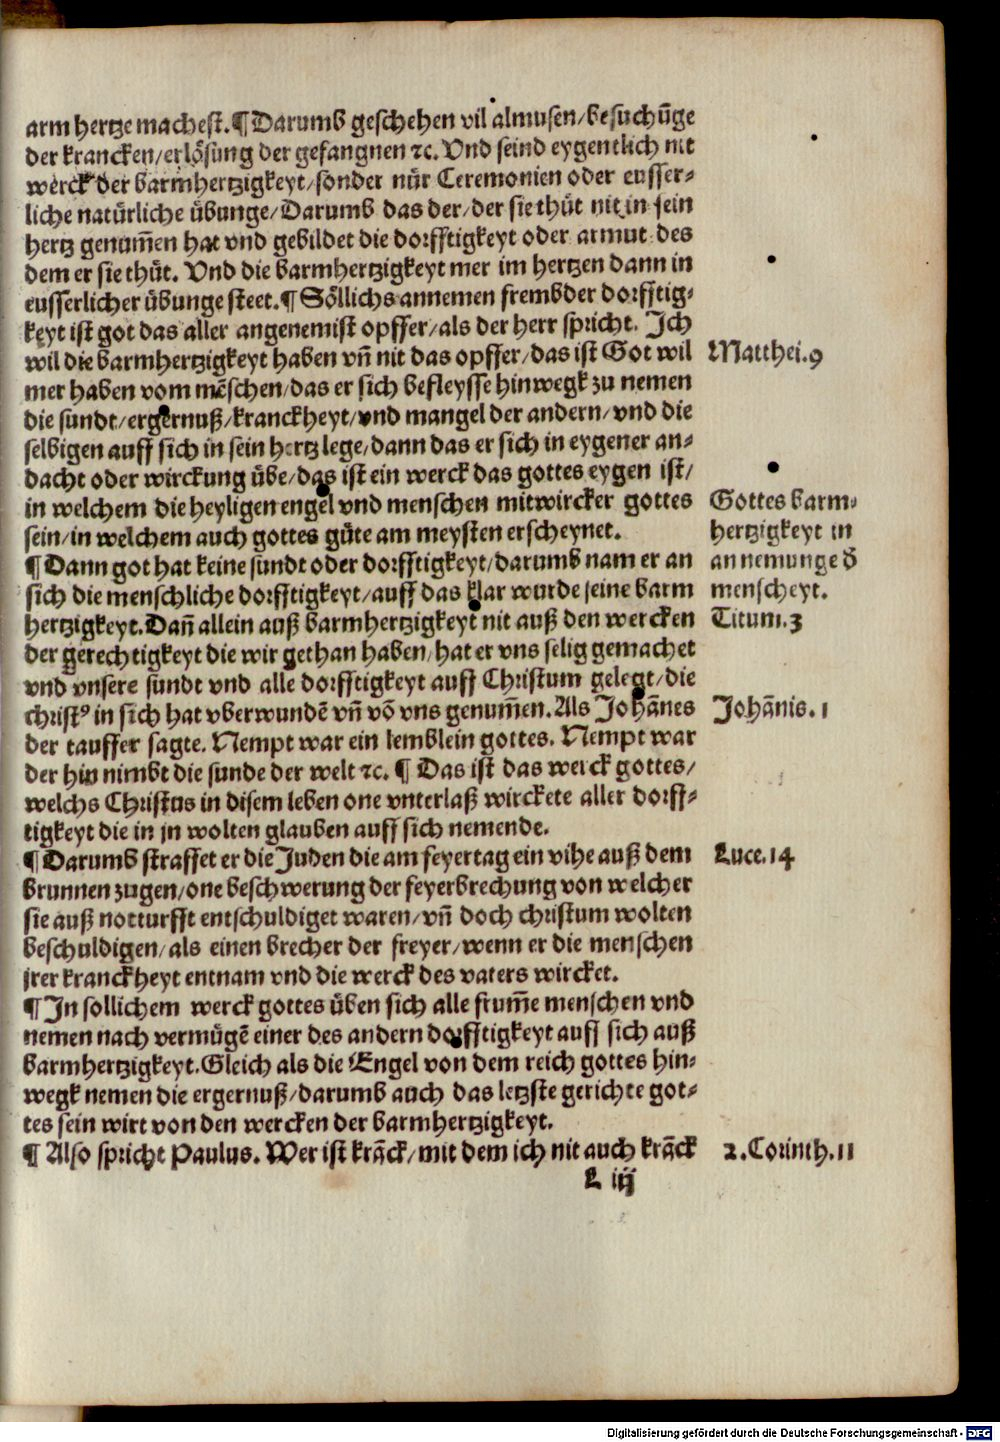 arm hertze machest.¶Darumb geschehen vil almusen/besuchũge
der krancken/erlösung der gefangnen ⁊c. Vnd seind eygentlich nit
werck der barmhertzigkeyt/sonder nür Ceremonien oder eusser⸗
liche natürliche übunge/Darumb das der/der sie thüt nit in sein
hertz genum̃en hat vnd gebildet die dorfftigkeyt oder armut des
dem er sie thüt. Vnd die barmhertzigkeyt mer im hertzen dann in
eusserlicher übunge steet.¶Söllichs annemen frembder dorfftig⸗
keyt ist got das aller angenemist opffer/als der herr spricht. Ich
wil die barmhertzigkeyt haben vñ nit das opffer/das ist Got wil
Matthei.9
mer haben vom mẽschen/das er sich befleysse hinwegk zu nemen
die sundt/ergernuß/kranckheyt/vnd mangel der andern/vnd die
selbigen auff sich in sein hertz lege/dann das er sich in eygener an⸗
dacht oder wirckung übe/das ist ein werck das gottes eygen ist/
in welchem die heyligen engel vnd menschen mitwircker gottes
sein/in welchem auch gottes güte am meysten erscheynet.
Gottes barm⸗
hertzigkeyt in
annemunge d̕
menscheyt.
¶Dann got hat keine sundt oder dorfftigkeyt/darumb nam er an
sich die menschliche dorfftigkeyt/auff das klar wurde seine barm
hertzigkeyt.Dañ allein auß barmhertzigkeyt nit auß den wercken
Titum.3
der gerechtigkeyt die wir gethan haben/hat er vns selig gemachet
vnd vnsere sundt vnd alle dorfftigkeyt auff Christum gelegt/die
christꝰ in sich hat vberwundẽ vñ võ vns genum̃en. Als Johãnes
Johãnis.1
der tauffer sagte. Nempt war ein lemblein gottes. Nempt war
der hin nimbt die sunde der welt ⁊c. ¶ Das ist das werck gottes/
welchs Christus in disem leben one vnterlaß wirckete aller dorff⸗
tigkeyt die in jn wolten glauben auff sich nemende.
¶Darumb straffet er die Juden die am feyertag ein vihe auß dem
Luce.14
brunnen zugen/one beschwerung der feyerbrechung von welcher
sie auß notturfft entschuldiget waren/vñ doch christum wolten
beschuldigen/als einen brecher der freyer/wenn er die menschen
jrer kranckheyt entnam vnd die werck des vaters wircket.
¶In sollichem werck gottes üben sich alle frum̃e menschen vnd
nemen nach vermügẽ einer des andern dorfftigkeyt auff sich auß
barmhertzigkeyt.Gleich als die Engel von dem reich gottes hin⸗
wegk nemen die ergernuß/darumb auch das letzste gerichte got⸗
tes sein wirt von den wercken der barmhertzigkeyt.
¶ Also spricht Paulus. Wer ist krãck/mit dem ich nit auch krãck
2.Corinth.11
L iij
Digitalisierung gefördert durch die Deutsche Forschungsgemeinschaft - DFG